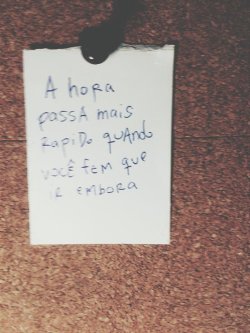 A hora
passa mais
rapido quando
você tem que
ir embora